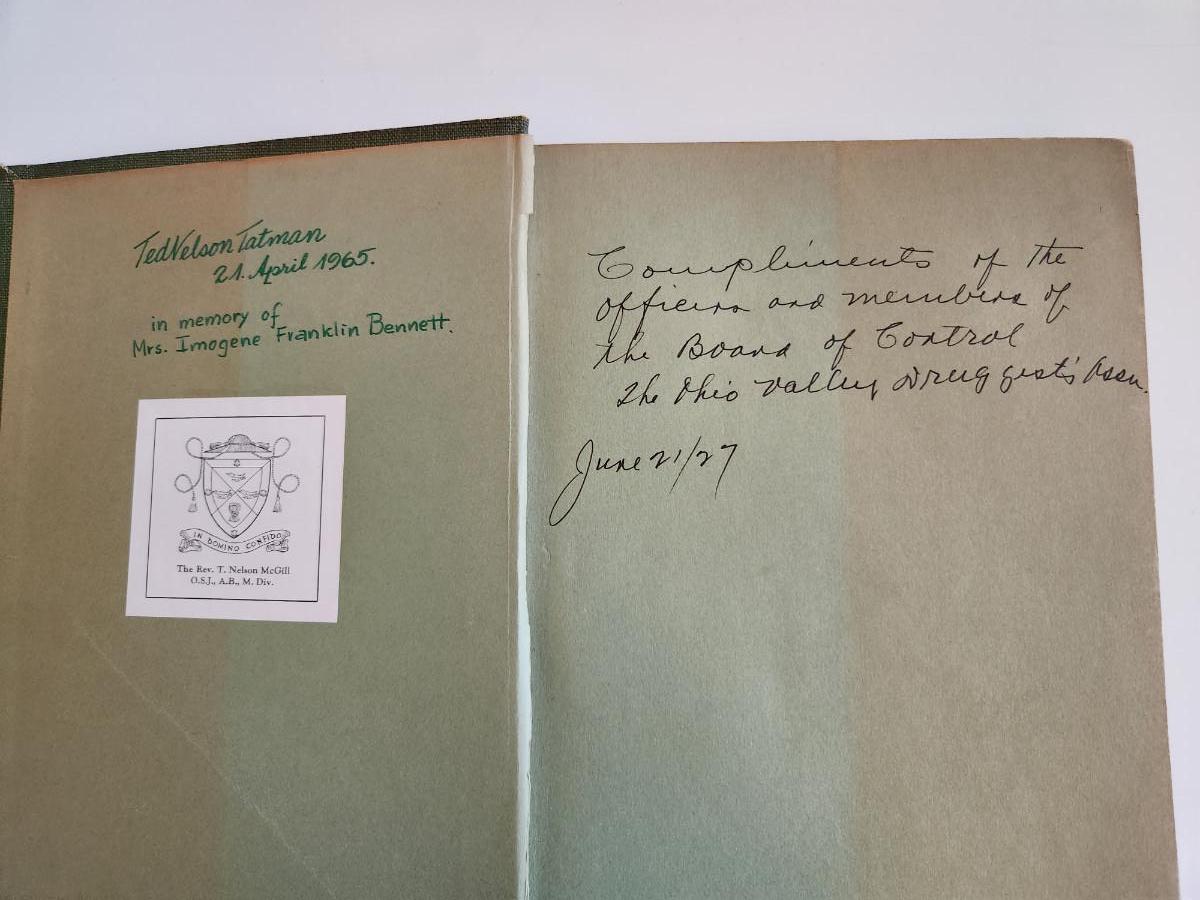 Ted Nelson Tatman
21. April 1965.
in memory of
Mrs. Imogene Franklin Bennett.
IN DOMINO CONFIDO
The Rev. T. Nelson McGill
O.S.J., A.B., M. Div.
Compliments of the
officers and members of
the Board of Control
The Ohio Valley Druggists' Assn.
June 21/27